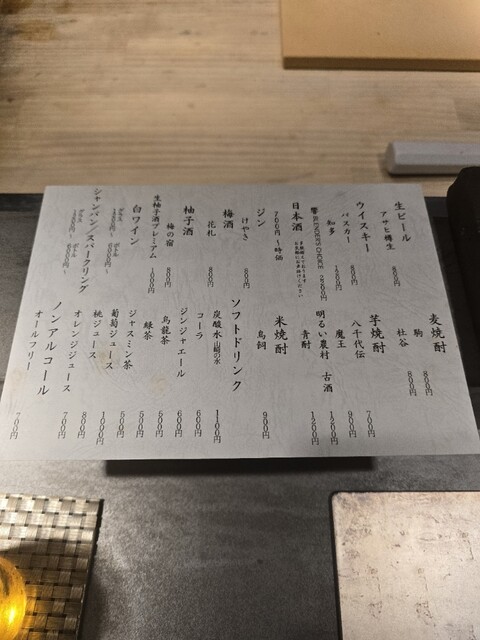 生ビール
アサヒ樽生 800円
ウイスキー
バスカー 800円
知多
響BLENDER'S CHOICE 2500円
日本酒
700円〜時価
多数揃えております
お気軽にお声がけください
ジン
けやき 800円
梅酒
花札 800円
柚子酒
梅の宿 800円
生柚子酒プレミアム 1000円
白ワイン
グラス ボトル
シャンパン/スパークリング
グラス ボトル
麦焼酎
駒 800円
杜谷 800円
芋焼酎
八千代伝 700円
魔王 900円
明るい農村 古酒 1200円
青酎 1200円
米焼酎
鳥飼 900円
ソフトドリンク
炭酸水山崎の水 1100円
コーラ 600円
ジンジャエール 600円
烏龍茶 500円
緑茶 500円
ジャスミン茶 500円
葡萄ジュース 1000円
桃ジュース 800円
オレンジジュース 700円
ノンアルコール
オールフリー 700円